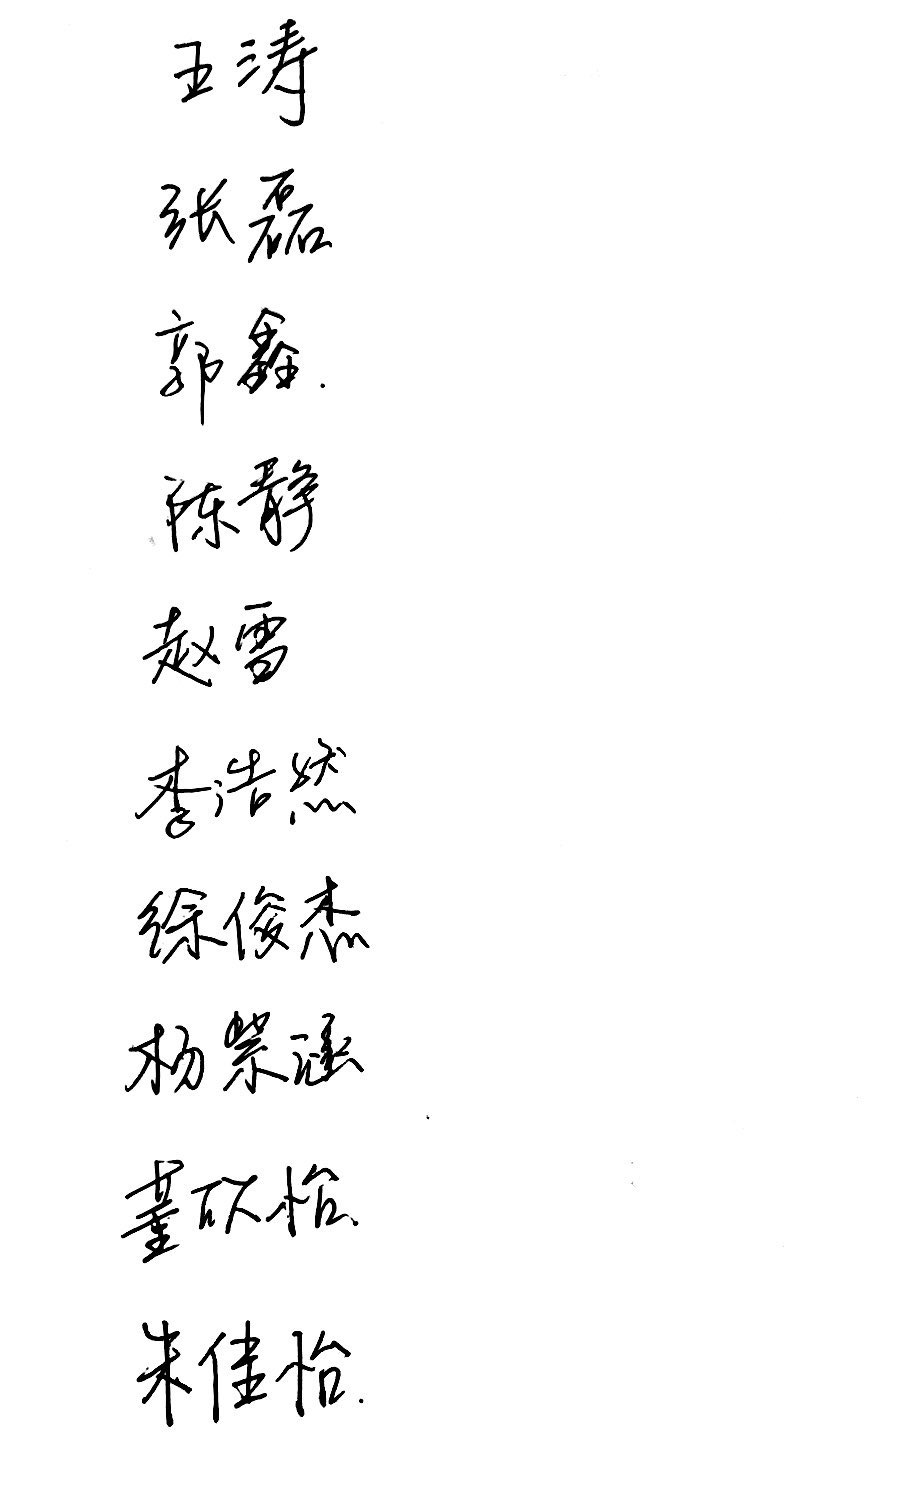 王涛
张磊
郭鑫.
陈静
赵雪
李浩然
徐俊杰
杨紫涵
董欣怡.
朱佳怡.